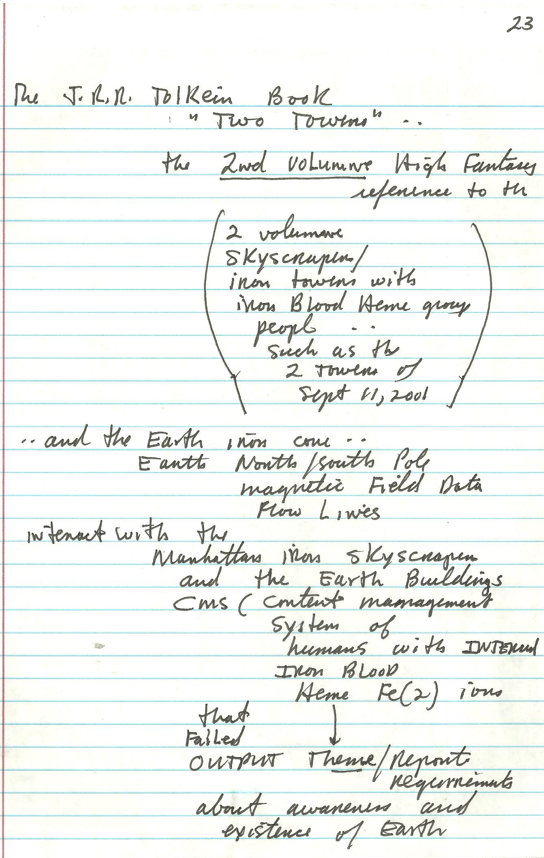 23
The J.R.R. Tolkein Book
"Two Towers" ..
the 2nd volumne High Fantasy
reference to th
2 volumne
skyscrapers/
iron towers with
iron Blood Heme group
peopl ..
such as th
2 towers of
Sept 11, 2001
.. and the Earth iron core ..
Earth North/South Pole
magnetic Field Data
Flow Lines
interact with the
Manhattan iron skyscraper
and the Earth Buildings
CMS ( Content management
System of
humans with INTERNAL
IRON BLOOD
Heme Fe(2) ions
that
Failed
OUTPUT Theme/Report
Requirements
about awareness and
existence of Earth